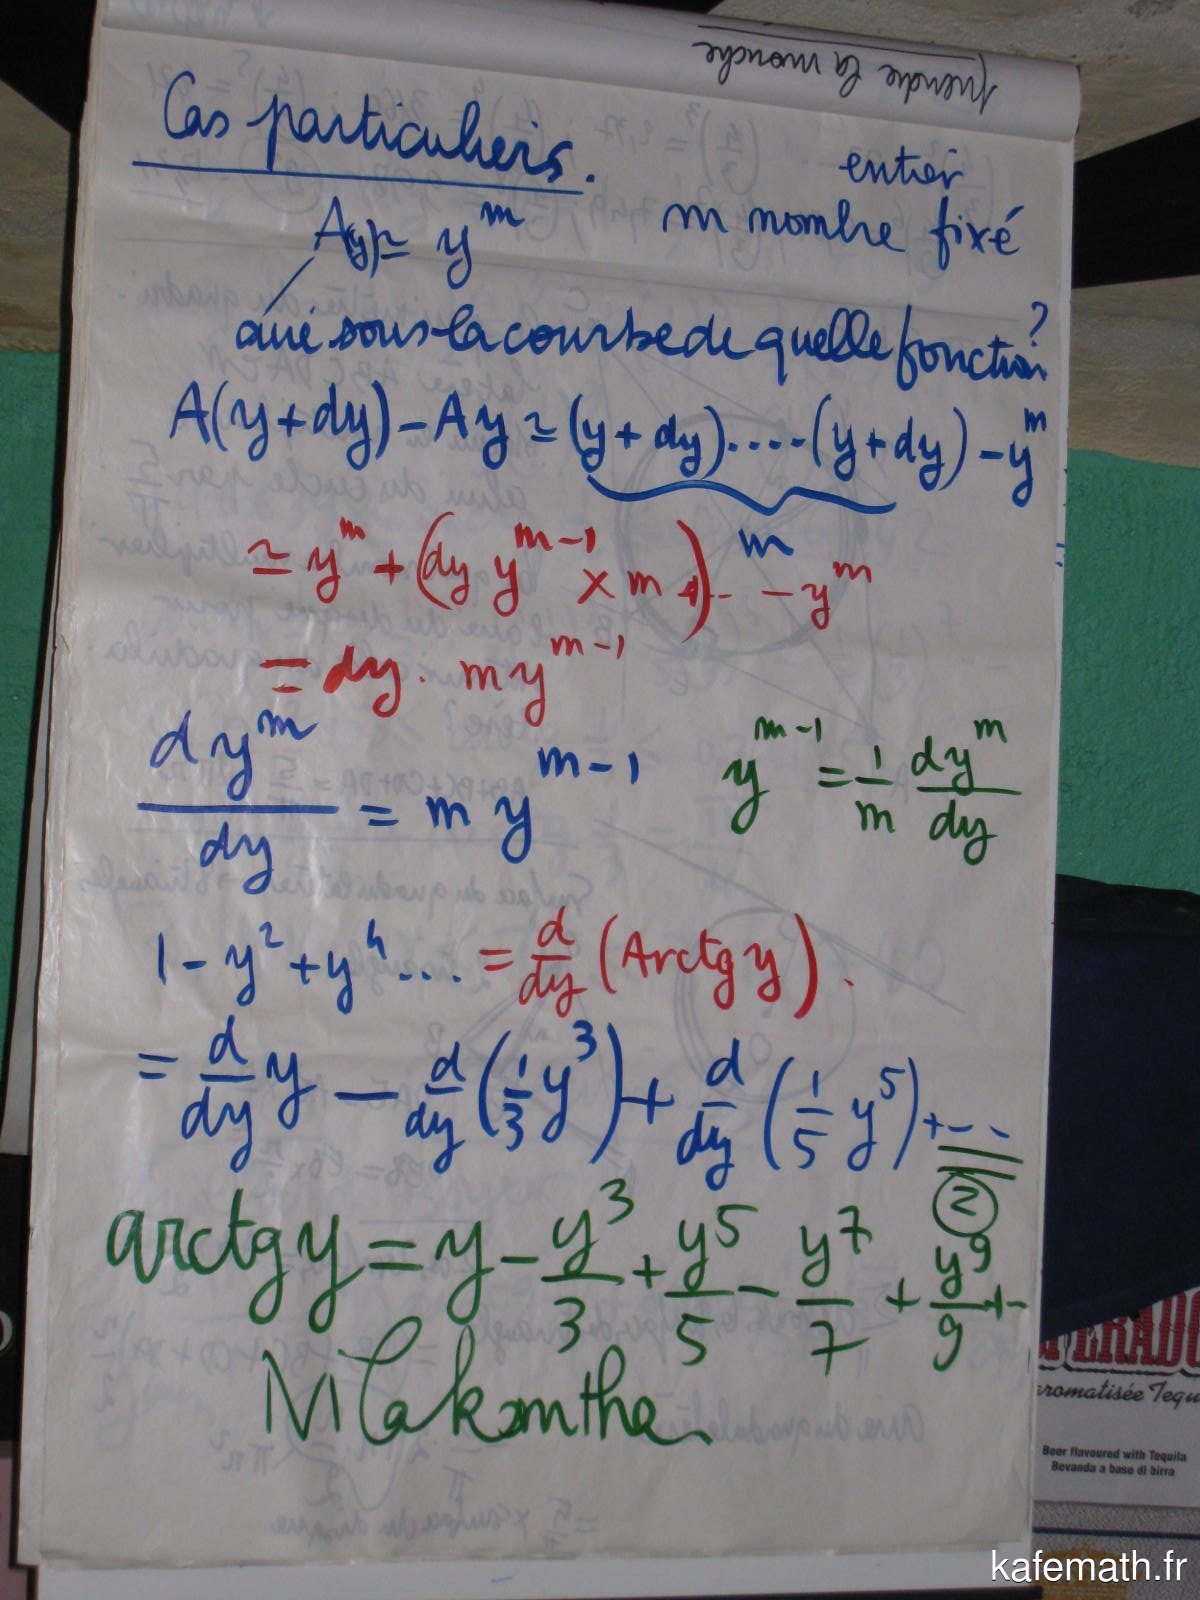 prendre la mouche
Cas particuliers.
entier
A(y) = y^m m nombre fixé
aire sous la courbe de quelle fonction?
A(y+dy) - Ay = (y+dy)....(y+dy) - y^m
m
= y^m + (dy y^{m-1} × m ..) - - y^m
= dy. m y^{m-1}
dy^m/dy = m y^{m-1} y^{m-1} = 1/m dy^m/dy
1 - y^2 + y^4 .... = d/dy (Arctg y).
= d/dy y - d/dy (1/3 y^3) + d/dy (1/5 y^5) + - -
2
arctg y = y - y^3/3 + y^5/5 - y^7/7 + y^9/9 + -
Nilakantha
PERADO
aromatisée Tequ
Beer flavoured with Tequila
Bevanda a base di birra
kafemath.fr